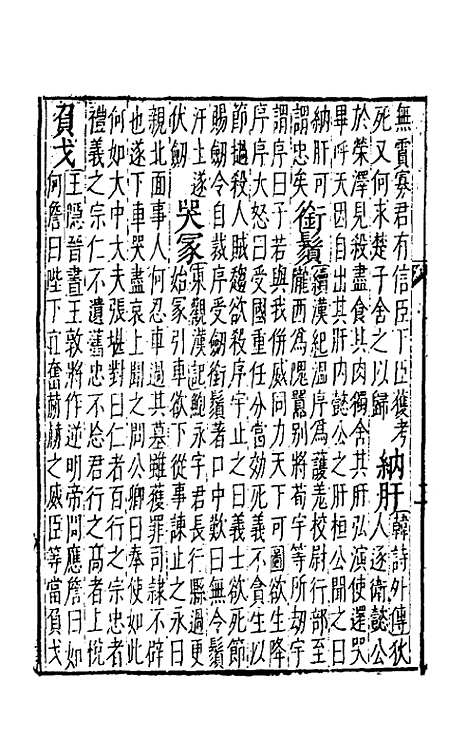 無霣寡君有信臣下臣獲考
死又何求楚子舍之以歸 納肝 韓詩外傳狄人逐衛懿公
於榮澤見殺盡食其肉獨舍其肝弘演使還哭
畢呼天因自出其肝內懿公之肝桓公聞之曰
納肝可
謂忠矣 銜鬚 續漢紀溫序為護羌校尉行部至
隴西為隗囂別將荀宇等所劫宇
謂序曰子若與我併威同力天下可圖欲生降
序序大怒曰受國重任分當効死義不貪生以
節撾殺人賊趨欲殺序宇止之曰義士欲死節
賜劒令自裁序受劒銜鬚著口中歎曰無令鬚
汙土遂
伏劒 哭冢 東觀漢記鮑永字君長行縣過更
始冢引車欲下從事諫止之永曰
親北面事人何忍車過其墓雖獲罪司隷不辟
也遂下車哭盡哀上聞之問公卿曰奉使如此
何如大中大夫張堪對曰仁者百行之宗忠者
禮義之宗仁不遺舊忠不忘君行之髙者上悅
負戈 王隱晉書王敦將作逆明帝問應詹曰如
何詹曰陛下宜奮赫赫之威臣等當負戈